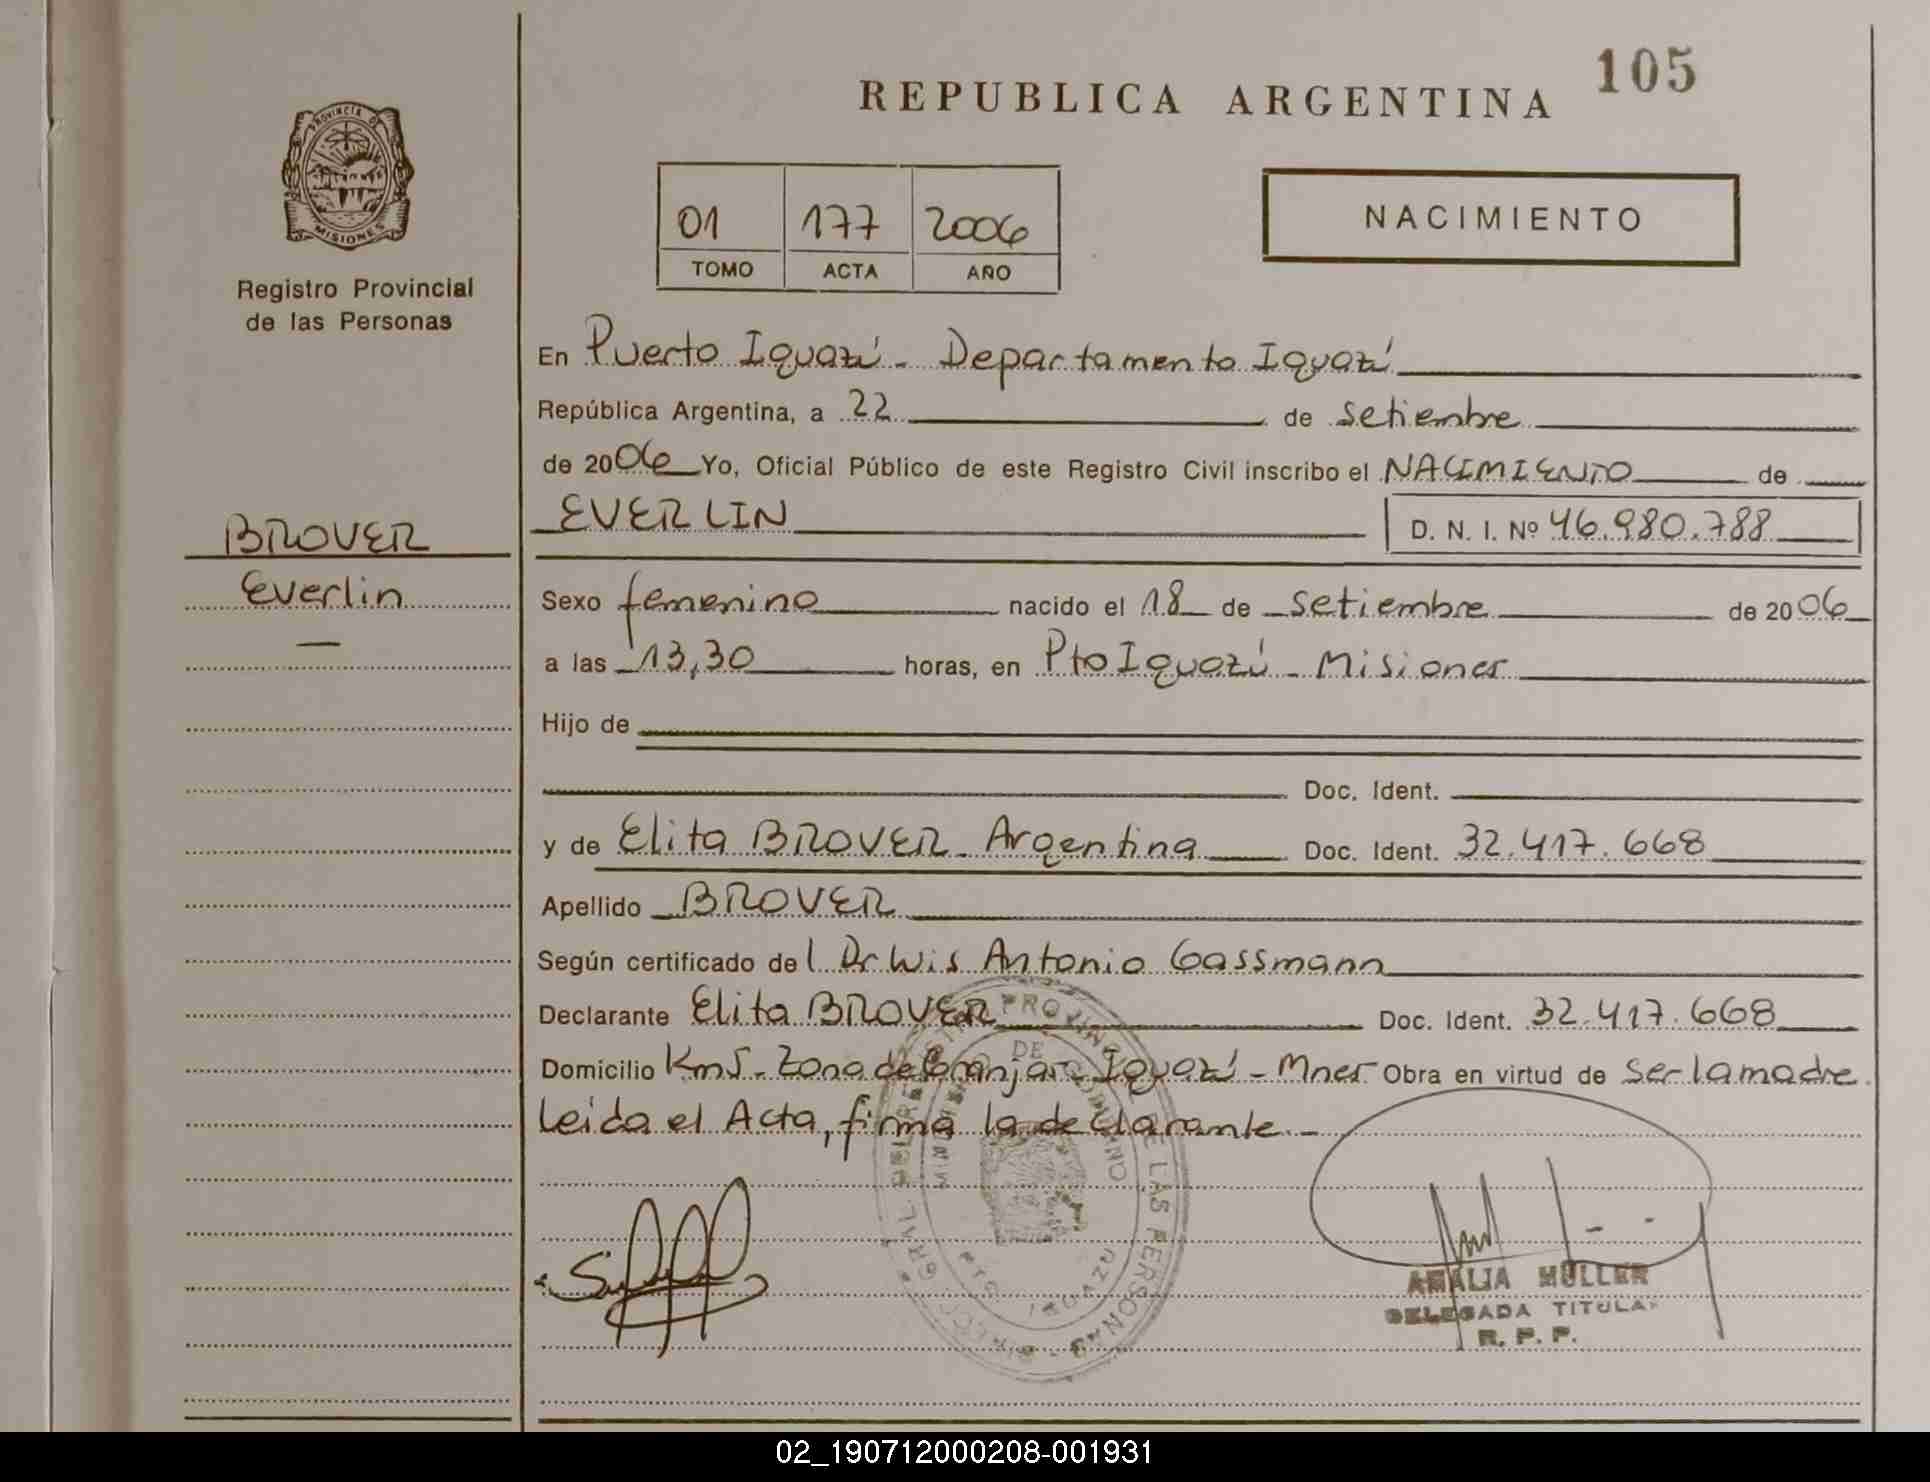 105
REPUBLICA ARGENTINA
PROVINCIA DE
MISIONES
Registro Provincial
de las Personas
01 177 2006
TOMO ACTA AÑO
NACIMIENTO
En Puerto Iguazú - Departamento Iguazú
República Argentina, a 22 de setiembre
de 2006 Yo, Oficial Público de este Registro Civil inscribo el NACIMIENTO de
BROVER
Everlin
—
EVERLIN D. N. I. Nº 46.980.788
Sexo femenino nacido el 18 de setiembre de 2006
a las 13,30 horas, en Pto Iguazú - Misiones
Hijo de
Doc. Ident.
y de Elita BROVER - Argentina Doc. Ident. 32.417.668
Apellido BROVER
Según certificado del Dr Luis Antonio Gassmann
Declarante Elita BROVER Doc. Ident. 32.417.668
Domicilio Km5 - Zona de Granjas - Iguazú - Mnes Obra en virtud de ser la madre
Leida el Acta, firma la declarante. -
PROVINCIAL DE LAS PERSONAS
MINISTERIO DE GOBIERNO
PTO IGUAZU
AMALIA MULLER
DELEGADA TITULAR
R. P. P.
02_190712000208-001931